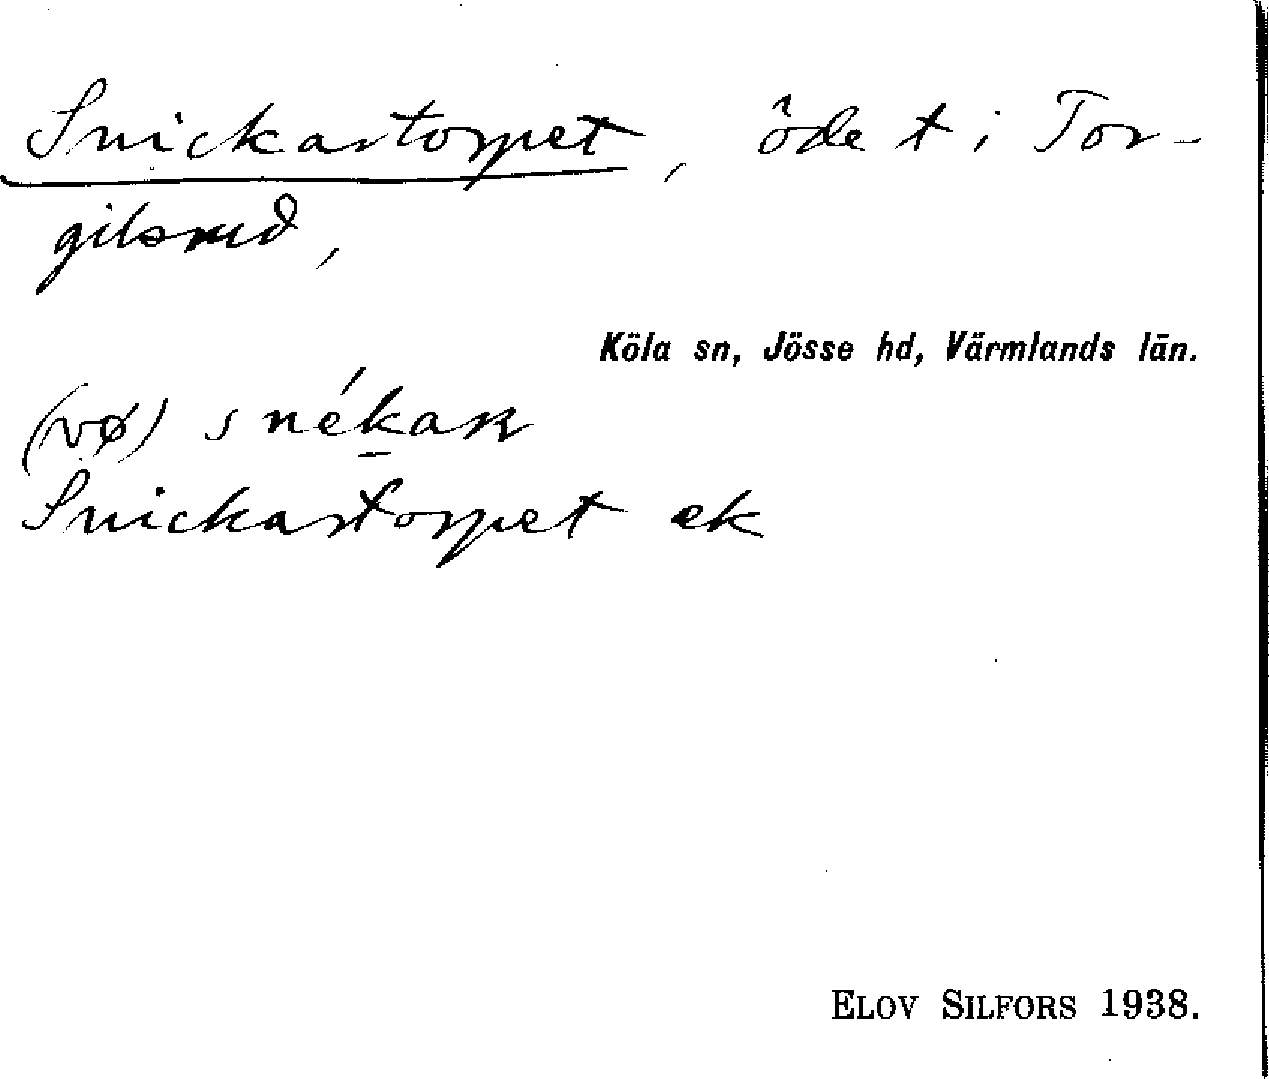 Snickartorpet, öde t i Tor-
gilsrud,
Köla sn, Jösse hd, Värmlands län.
(vø) snékaʀ
Snickartorpet ek
ELOV SILFORS 1938.